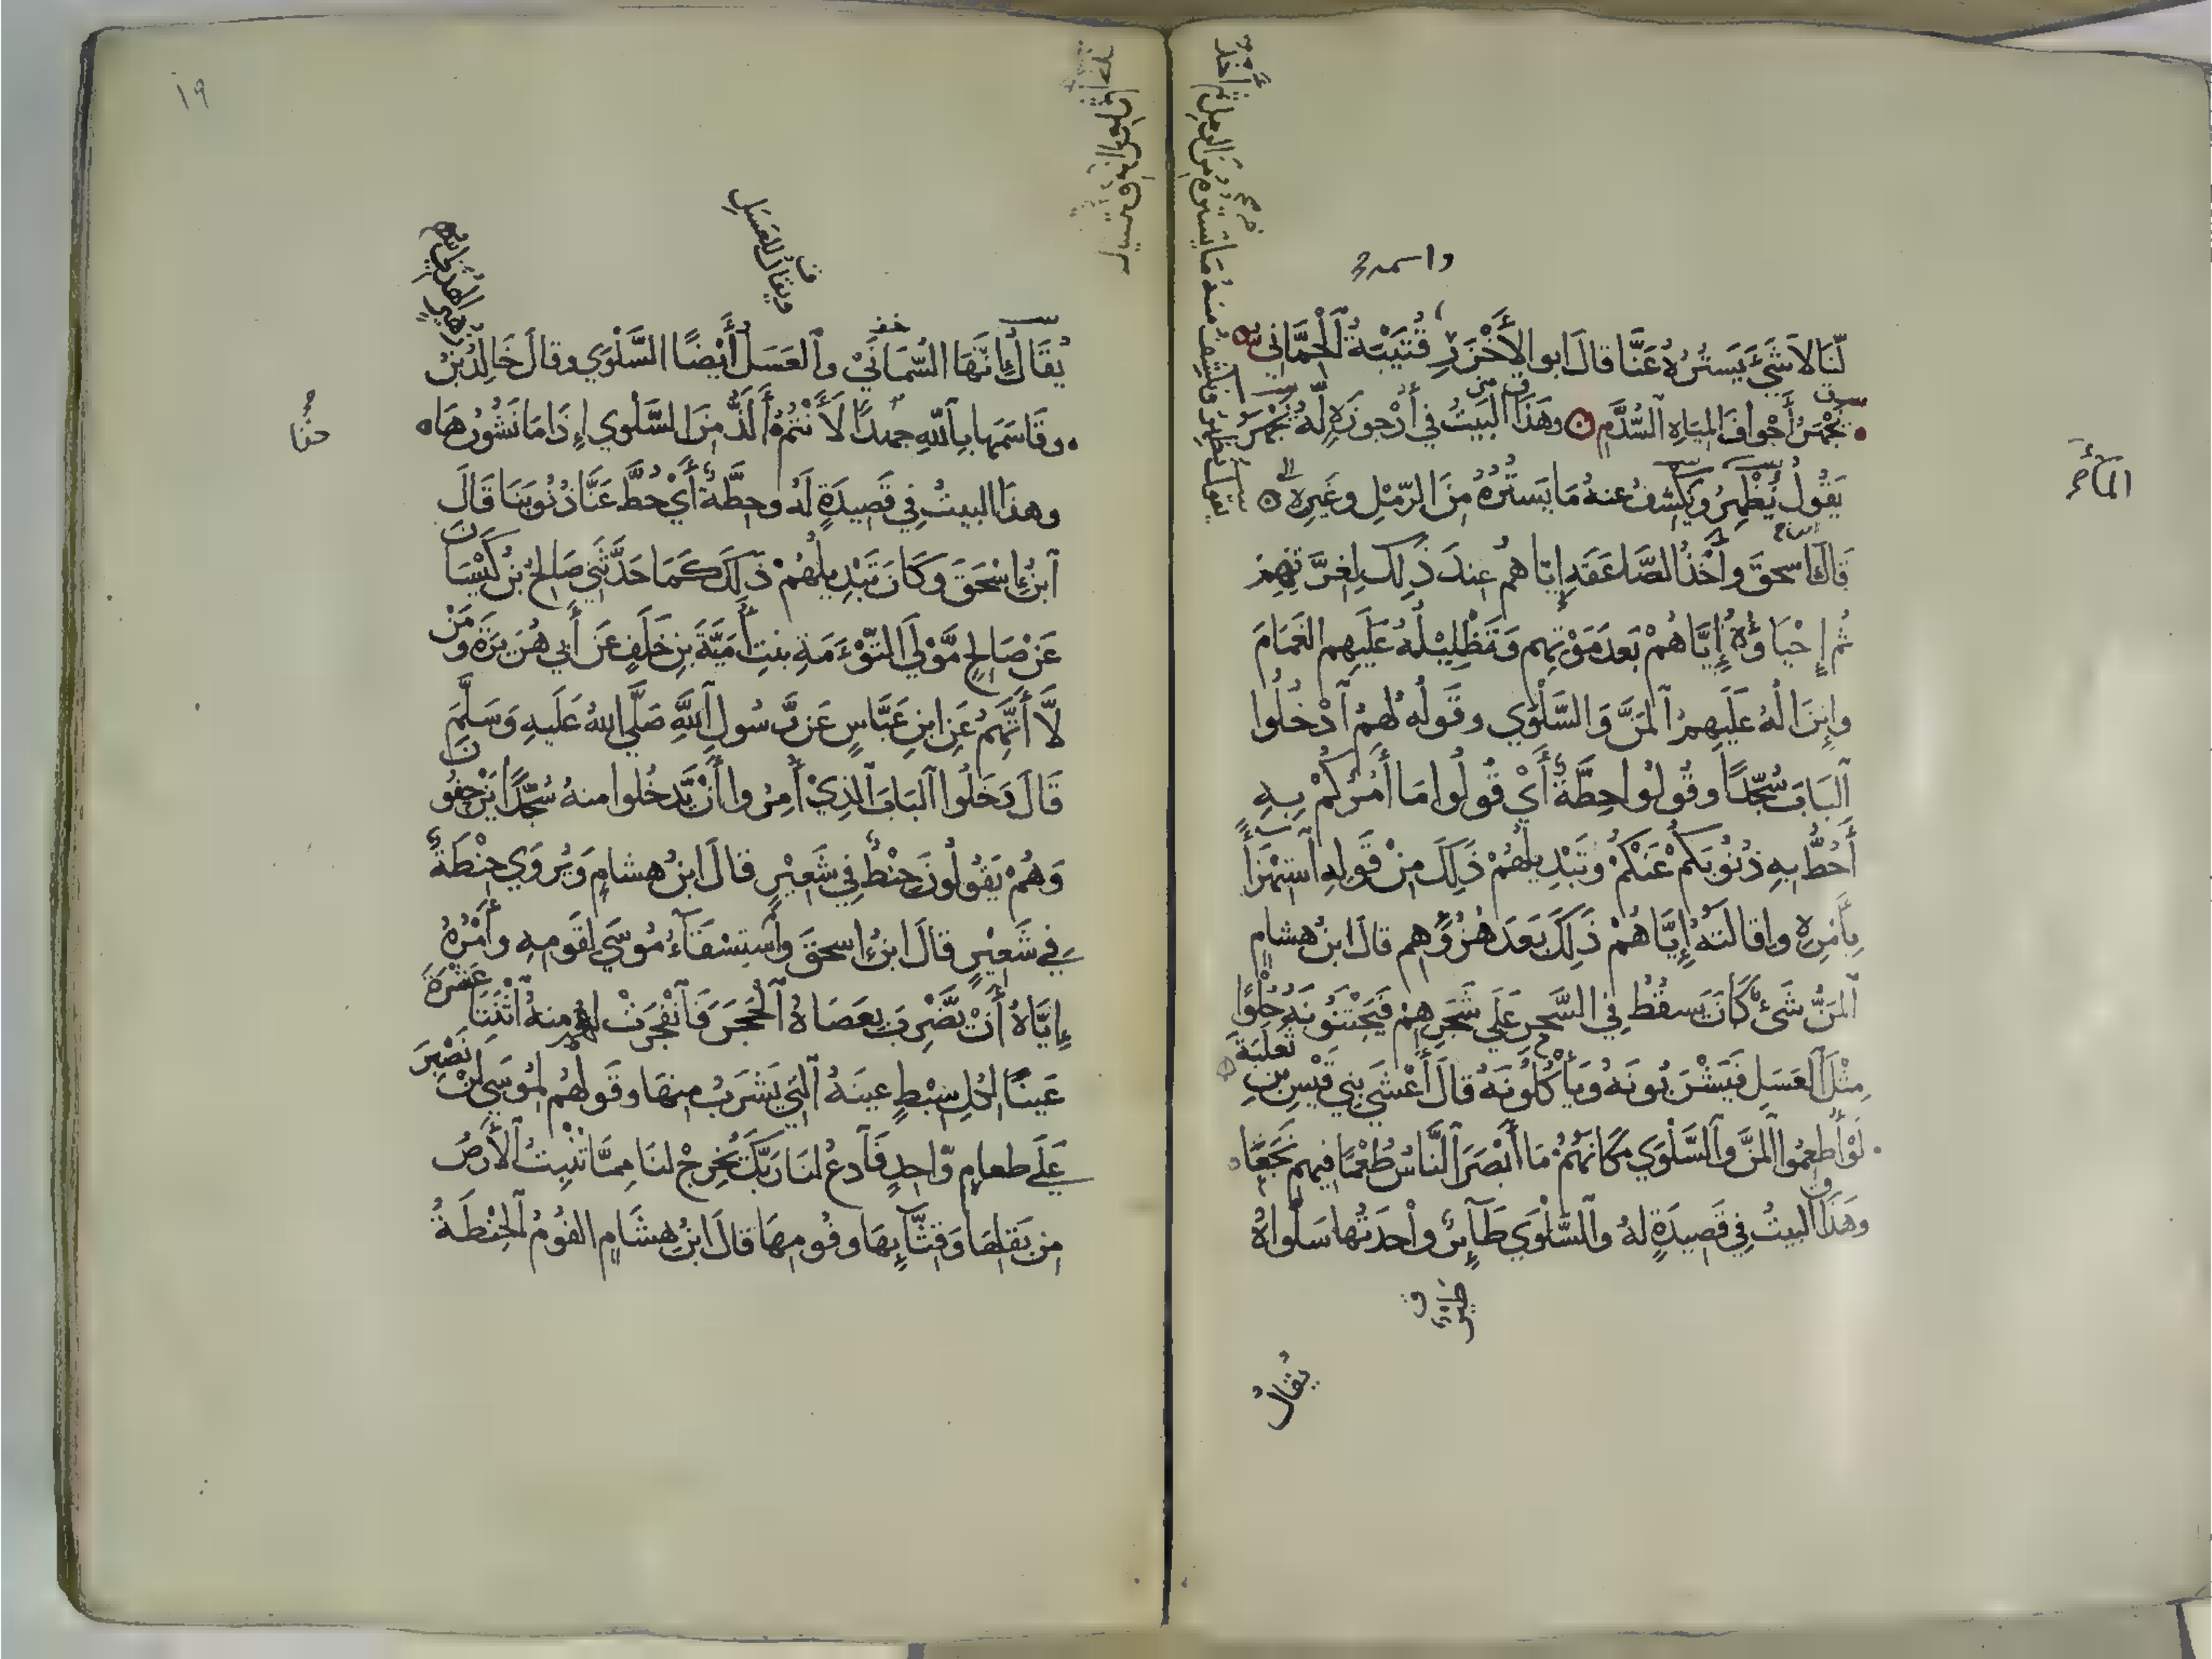 واسمه
لَّنَا لَا شَيْءَ يَسْتُرُهُ عَنَّا قال أبو الأَخْزَرِ قُتَيْبَةُ الْحِمَّانِيُّ
يَجْهَرُ أَجْوافَ المِيَاهِ السُّدَّمِ وهَذَا البَيتُ في أُرْجوزَةٍ لَّهُ يَجْهَرُ
يَقُولُ يُظْهِرُ ويَكْشِفُ عنهُ مَا يَسْتُرُهُ مِنَ الرَّمْلِ وغَيرِهِ
قَالَ ابن إسحقَ وأَخْذُ الصَّاعِقَةِ إِيَّاهُمْ عِندَ ذَلِكَ لِغِرَّتِهِمْ
ثُم إِحْيَاؤُهُ إِيَّاهُمْ بَعدَ مَوْتِهِم وَتَظْلِيْلُهُ عَلَيهِم الغَمَامَ
وإِنزَالُهُ عَلَيهِمُ المَنَّ وَالسَّلْوَي وقَولُه لَهُمُ ادْخُلُوا
البَابَ سُجَّدًا وقُولُوا حِطَّةٌ أَيْ قُولُوا مَا أَمُرُكُمْ بِهِ
أَحُطُّ بِهِ ذنُوبَكُمْ عَنْكُمْ وتَبْدِيلُهُمْ ذَلِكَ مِنْ قَولِهِ اسْتِهْزَأً
بِأَمْرِهِ وإِقَالَتُهُ إِيَّاهُمْ ذَلِكَ بَعَدَ هُزُؤِهِم قالَ ابنُ هشامٍ
المَنُّ شَيْءٌ كَانَ يَسقُطُ فِي السَّحَرِ عَلَي شَجَرِهِمْ فَيَجْتَنُونَهُ حُلْوًا
مِثْلَ العَسَلِ فَيَشْرَبُونَهُ ويَأْكُلُونَهُ قالَ أَعْشَي بَنِي قَيْسِ بنِ ثَعلَبَةَ
لَوْ أُطعِمُوا المَنَّ والسَّلْوَي مَكَانَهُمُ مَا أَبْصَرَ النَّاسُ طُعْمًا فيهِمِ نَجَعَا
وهَذَا البيتُ فِي قَصِيدَةٍ لهُ والسَّلْوَي طَآئِرٌ واْحِدَتُها سَلْوَاهٌ
طيرٌ
يُقالُ
١٩
ويقالُ للعَسَلِ
يُقَالُ إِنَّهَا السُّمَانَيْ والعَسَلُ أَيْضًا السَّلْوَي وقالَ خَالِدُ بْنُ
وقَاسَمَهَا بِاللهِ جهدًا لَأَنْتُمُ أَلَذُّ مِنَ السَّلْوي إِذَا مَا نَشُورُهَا
وهذَا البيتُ فِي قَصِيدَةٍ لَهُ وحِطَّةٌ أَيْ حُطَّ عَنَّا ذنُوبَنَا قَالَ
ابنُ إسْحَقَ وكَانَ تَبْدِيلُهُمْ ذَلِكَ كَمَا حَدَّثَنِي صَالِحُ بنُ كَيْسَانَ
عَنْ صَالِحٍ مَّوْلَي التَّوْءَمَةِ بنتِ أُمَيَّةَ بنِ خَلَفٍ عَن أَبِي هُرَيرَةَ ومَنْ
لَّا أَتَّهِمُ عَنِ ابنِ عَبَّاسٍ عَن رَّسُولِ اللهِ صَلَّي اللهُ عَلَيهِ وَسَلَّمَ
قَالَ دَخَلُوا البَابَ الَّذِيْ أُمِرُوا أَنْ يَّدخُلوا منهُ سُجَّدًا يَزحَفُونَ
وَهُمْ يَقُولُونَ حِنْطٌ فِي شَعِيْرٍ قالَ ابنُ هشامٍ وَيُروَي حِنْطَةٌ
فِي شَعِيْرٍ قالَ ابنُ اسحقَ واسْتِسْقَآءُ مُوسَي لِقَومِهِ وأَمْرُهُ
إِيَّاهُ أَنْ يَّضْرِبَ بِعَصَاهُ الْحَجَرَ فَانْفَجَرَتْ لهُم مِنهُ اثْنَتَا عَشْرَةَ
عَينًا لِّكُلِ سِبْطٍ عينَهُ الَّتِي يَشْرَبُ مِنهَا وقَولُهُم لِمُوسَي لَنْ نَصْبِرَ
عَلَي طعامٍ وَّاحِدٍ فَادعُ لنَا رَبَّكَ يُخرِجْ لنَا مِمَّا تُنْبِتُ الأَرضُ
مِن بَقلِهَا وَقِثَّآئِهَا وفُومِهَا قالَ ابنُ هِشَامٍ الفُومُ الحِنْطَةُ